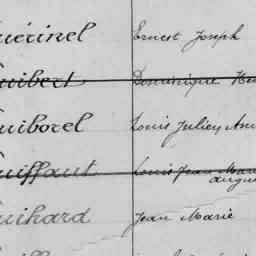 uérinel Ernest Joseph
uibert Dominique
uiborel Louis Julien
uiffaut Louis Jean Marie
uihard Jean Marie